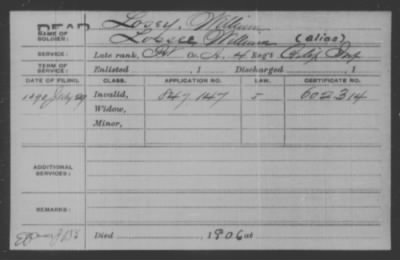 DEAD
NAME OF SOLDIER: Losey, William
Lossee William (alias)
SERVICE: Late rank, Pvt Co. A, 4 Reg't Calif Inf
TERM OF SERVICE: Enlisted , 1 Discharged , 1
DATE OF FILING. CLASS. APPLICATION NO. LAW. CERTIFICATE NO.
1890 July 29 Invalid, 847.147 5 602314
Widow,
Minor,
ADDITIONAL SERVICES:
REMARKS:
Died , 1906 at